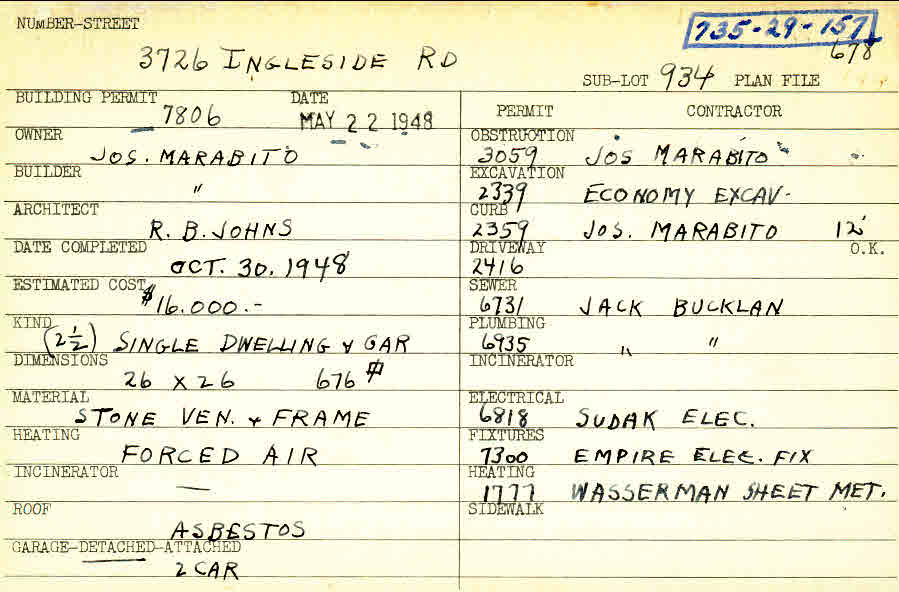 NUMBER-STREET
735-29-157
3726 INGLESIDE RD
678
SUB-LOT 934 PLAN FILE
BUILDING PERMIT DATE
7806 MAY 22 1948
OWNER
JOS. MARABITO
BUILDER
"
ARCHITECT
R. B. JOHNS
DATE COMPLETED
OCT. 30. 1948
ESTIMATED COST
$16.000.-
KIND
(2½) SINGLE DWELLING & GAR
DIMENSIONS
26 X 26 676 #
MATERIAL
STONE VEN. & FRAME
HEATING
FORCED AIR
INCINERATOR
—
ROOF
ASBESTOS
GARAGE-DETACHED-ATTACHED
2 CAR
PERMIT CONTRACTOR
OBSTRUCTION
3059 JOS MARABITO
EXCAVATION
2339 ECONOMY EXCAV-
CURB
2359 JOS. MARABITO 12'
DRIVEWAY O.K.
2416
SEWER
6731 JACK BUCKLAN
PLUMBING
6935 " "
INCINERATOR
ELECTRICAL
6818 SUDAK ELEC.
FIXTURES
7300 EMPIRE ELEC. FIX
HEATING
1777 WASSERMAN SHEET MET.
SIDEWALK